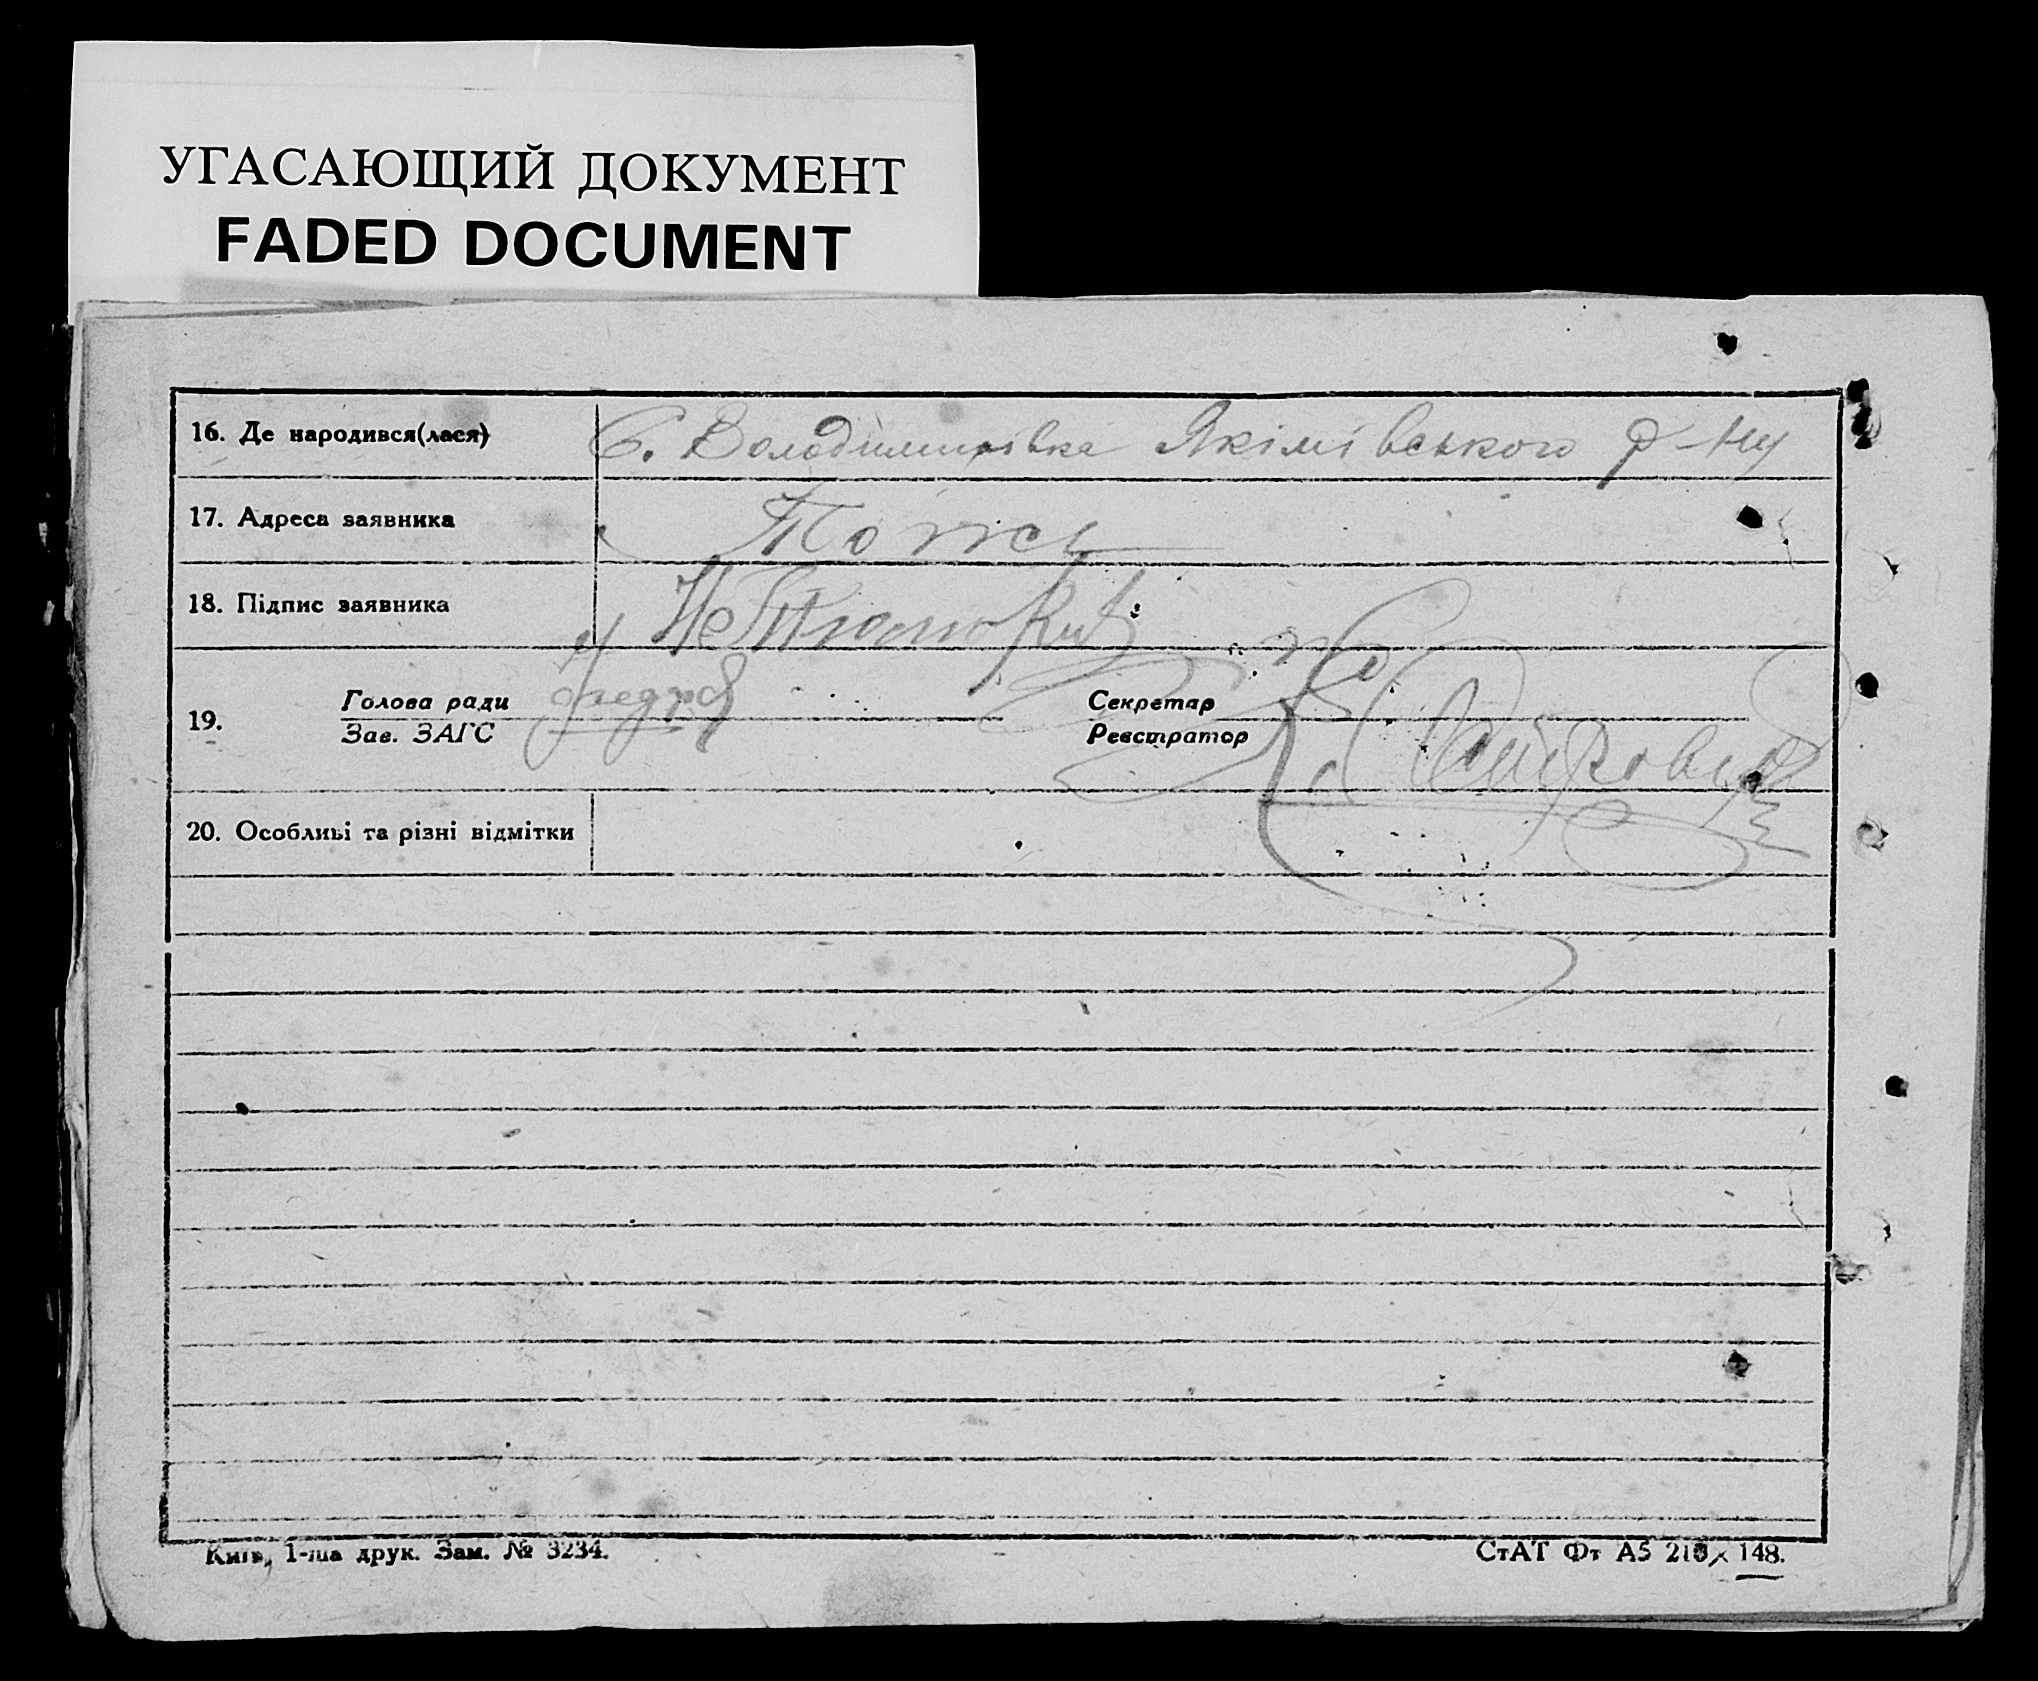 УГАСАЮЩИЙ ДОКУМЕНТ
FADED DOCUMENT
16. Де народився(лася) С. Володимирівка Якімівського р-ну
17. Адреса заявника
18. Підпис заявника
19. Голова ради Секретар
Зав. ЗАГС Реєстратор
20. Особливі та різні відмітки
Київ, 1-ша друк. Зам. № 3234. СтАТ Фт А5 210 × 148.